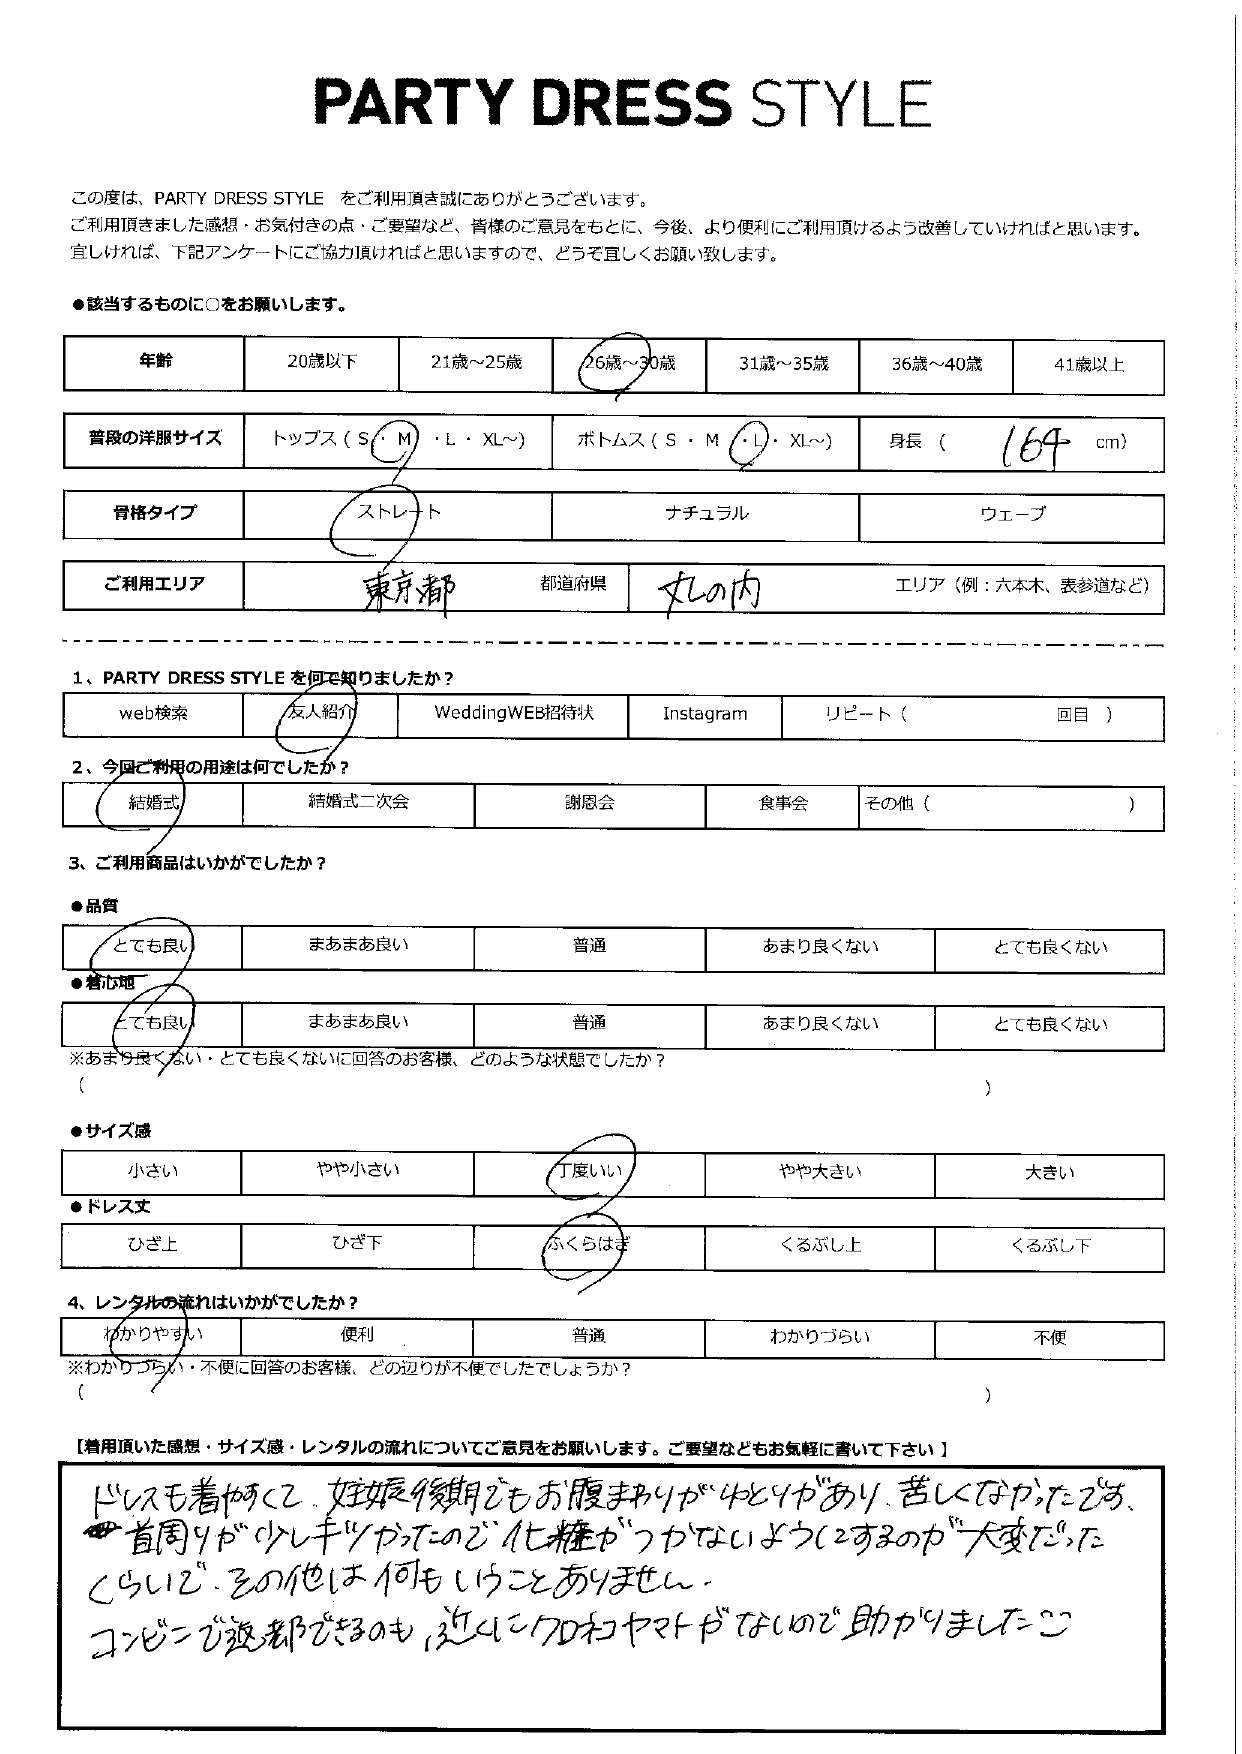 PARTY DRESS STYLE
この度は、PARTY DRESS STYLE をご利用頂き誠にありがとうございます。
ご利用頂きました感想・お気付きの点・ご要望など、皆様のご意見をもとに、今後、より便利にご利用頂けるよう改善していければと思います。
宜しければ、下記アンケートにご協力頂ければと思いますので、どうぞ宜しくお願い致します。
●該当するものに○をお願いします。
年齢 20歳以下 21歳～25歳 26歳～30歳 31歳～35歳 36歳～40歳 41歳以上
普段の洋服サイズ トップス ( S ・ M ・L ・ XL～) ボトムス ( S ・ M ・L・ XL～) 身長 ( 164 cm)
骨格タイプ ストレート ナチュラル ウェーブ
ご利用エリア 東京都 都道府県 丸の内 エリア（例：六本木、表参道など）
1、PARTY DRESS STYLE を何で知りましたか？
web検索 友人紹介 WeddingWEB招待状 Instagram リピート（ 回目 ）
2、今回ご利用の用途は何でしたか？
結婚式 結婚式二次会 謝恩会 食事会 その他（ ）
3、ご利用商品はいかがでしたか？
●品質
とても良い まあまあ良い 普通 あまり良くない とても良くない
●着心地
とても良い まあまあ良い 普通 あまり良くない とても良くない
※あまり良くない・とても良くないに回答のお客様、どのような状態でしたか？
（ ）
●サイズ感
小さい やや小さい 丁度いい やや大きい 大きい
●ドレス丈
ひざ上 ひざ下 ふくらはぎ くるぶし上 くるぶし下
4、レンタルの流れはいかがでしたか？
わかりやすい 便利 普通 わかりづらい 不便
※わかりづらい・不便に回答のお客様、どの辺りが不便でしたでしょうか？
（ ）
【着用頂いた感想・サイズ感・レンタルの流れについてご意見をお願いします。ご要望などもお気軽に書いて下さい 】
ドレスも着やすくて、妊娠後期でもお腹まわりがゆとりがあり、苦しくなかったです、
首周りが少しキツかったので化粧がつかないようにするのが大変だった
くらいで、その他は何もいうことありません。
コンビニで返却できるのも、近くにクロネコヤマトがないので助かりました